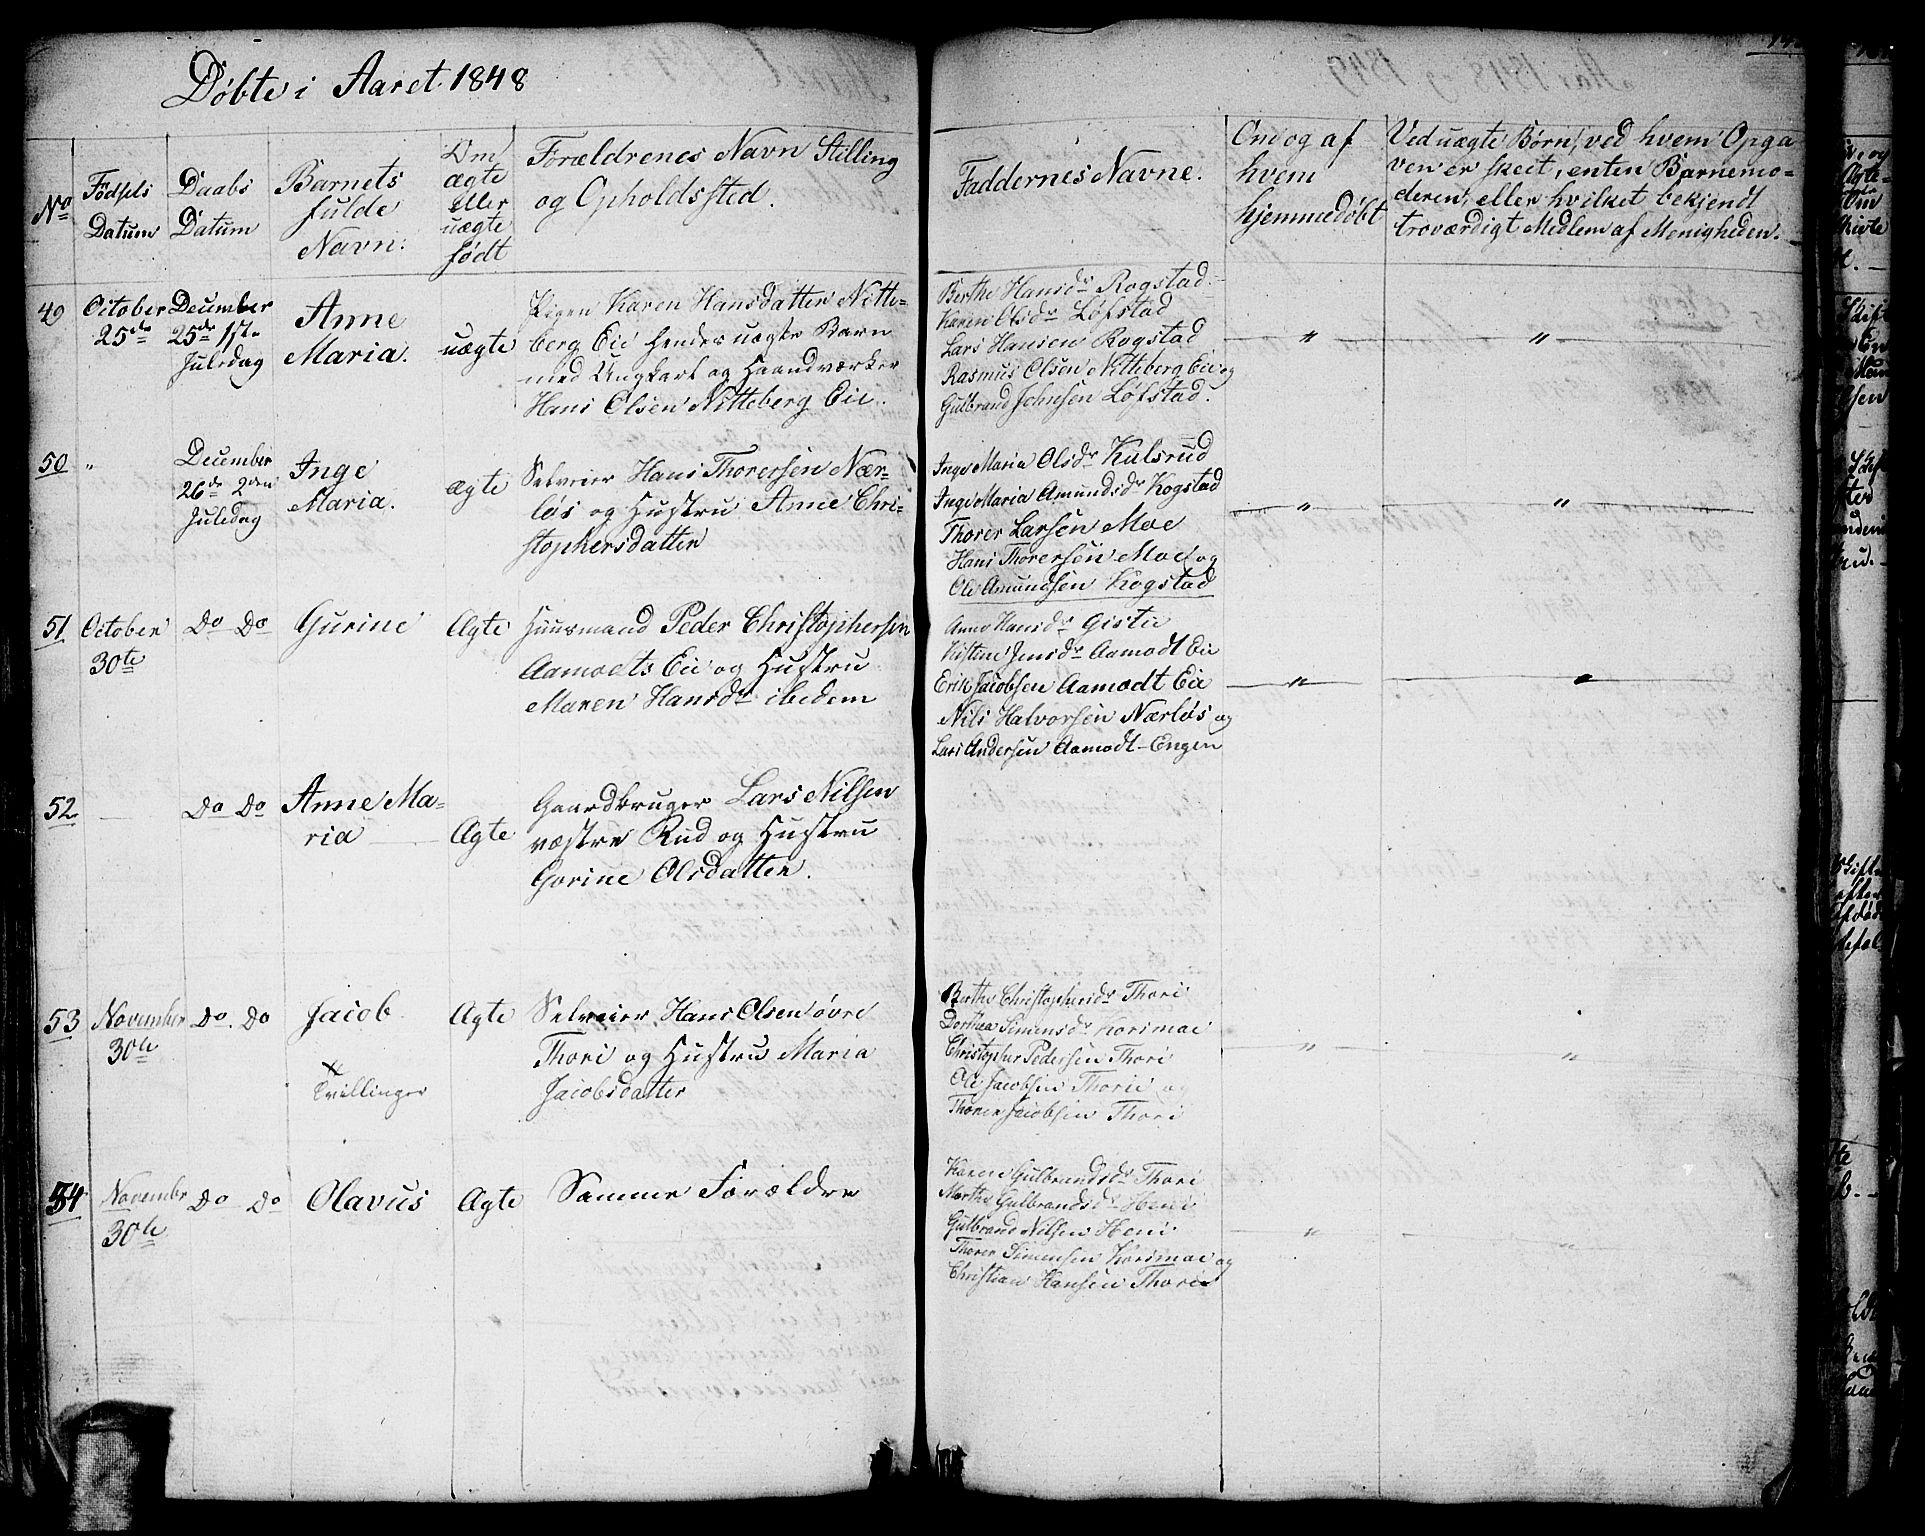 Døbte i Aaret 1848
No
Fødsels Datum
Daabs Datum
Barnets fulde Navn.
Om ægte eller uægte født
Forældrenes Navn Stilling og Opholdssted.
Faddernes Navne.
Om og af hvem hjemmedøbt
Ved uægte Børn, ved hvem Opga
ven er skeet, enten Barnemo-
deren, eller hvilket bekjendt
troværdigt Medlem af Menigheden.
49
October
25de
December
25de 1ste
Juledag
Anne
Maria.
uægte
Pigen Karen Hansdatter Nitte-
berg Eie hendes uægte Barn
med Ungkarl og Haandværker
Hans Olsen Nitteberg Eie.
Berthe Hansdr Rogstad
Karen Olsdr Løfstad
Lars Hansen Rogstad
Rasmus Olsen Nitteberg Eie og
Gulbrand Johnsen Løfstad.
" "
50
"
December
26de 2den
Juledag
Inge
Maria.
ægte
Selveier Hans Thorersen Nær-
løs og Hustru Anne Chri-
stophersdatter
Inge Maria Olsdr Kulsrud
Inge Maria Amundsdr Kogstad
Thorer Larsen Moe
Hans Thorersen Moe og
Ole Amundsen Kogstad
" "
51
October
30te
Do Do
Gurine
Ægte
Huusmand Peder Christophersen
Aamodts Eie og Hustru
Maren Hansdr ibedem
Anne Hansdr Gistie
Kistine Jensdr Aamodt Eie
Erik Jacobsen Aamodt Eie
Nils Halvorsen Nærløs og
Lars Andersen Aamodt-Engen
" "
52
Do Do
Anne Ma-
ria
Ægte
Gaardbruger Lars Nilsen
væstre Rud og Hustru
Gorine Olsdatter.
53
November
30te
Do. Do
Jacob
Tvillinger
Ægte
Selveier Hans Olsen øvre
Thori og Hustru Maria
Jacobsdatter
Berthe Christophersdr Thori
Dorthea Simensdr Korsmoe
Christopher Pedersen Thori
Ole Jacobsen Thorie og
Thorer Jacobsen Thori
" "
54
Novembr
30te
Do Do
Olavus
Ægte
Samme Forældre
Karen Gulbrandsdr Thori
Marthe Gulbrandsdr Heni
Gulbrand Nilsen Heni
Thorer Simensen Korsmoe og
Christian Hansen Thorie
" "